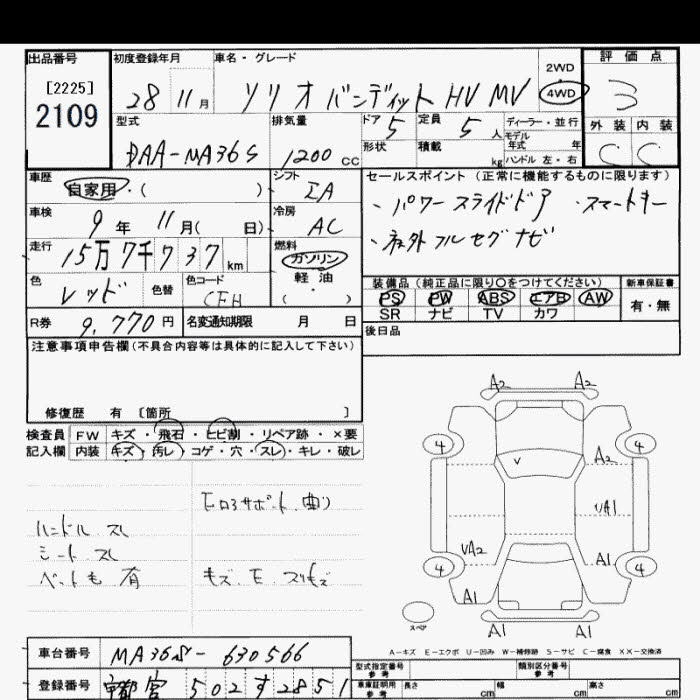 出品番号
[2225]
2109
初度登録年月
28 11 月
車名・グレード
ソリオ バンディット HV MV
2WD
4WD
評価点
3
外装 内装
C C
型式
DAA-MA36S
排気量
1200 cc
ドア 5
形状
定員 5 人
積載 kg
ディーラー・並行
モデル年式 年
ハンドル 左・右
車歴
自家用・( )
シフト
IA
車検
9 年 11 月( 日)
冷房
AC
走行
15万7千737 km
燃料
ガソリン
軽油
( )
色
レッド
色替
色コード
CFH
R券
9,770 円
名変通知期限 月 日
セールスポイント (正常に機能するものに限ります)
・パワースライドドア ・スマートキー
・社外フルセグナビ
装備品 (純正品に限り○をつけてください)
PS PW ABS エアB AW
SR ナビ TV カワ
新車保証書
有・無
後日品
注意事項申告欄 (不具合内容等は具体的に記入して下さい)
修復歴 有 〔箇所 〕
検査員記入欄
FW キズ・飛石・ヒビ割・リペア跡・×要
内装 キズ・汚レ・コゲ・穴・スレ・キレ・破レ
ハンドル スレ
シート スレ
ペットも 有
Eロ3サポート.曲り
キズ.E.スリキズ
A2 A2
4 4
A2
V
UA1
UA2
A1
4 4
A1
A1 A1
スペア
A-キズ E-エクボ U-凹み W-補修跡 S-サビ C-腐食 XX-交換済
車台番号
MA36S-630566
登録番号
宇都宮 502 す 2851
型式指定番号 参考
類別区分番号 参考
車庫証明用 参考
長さ cm
幅 cm
高さ cm